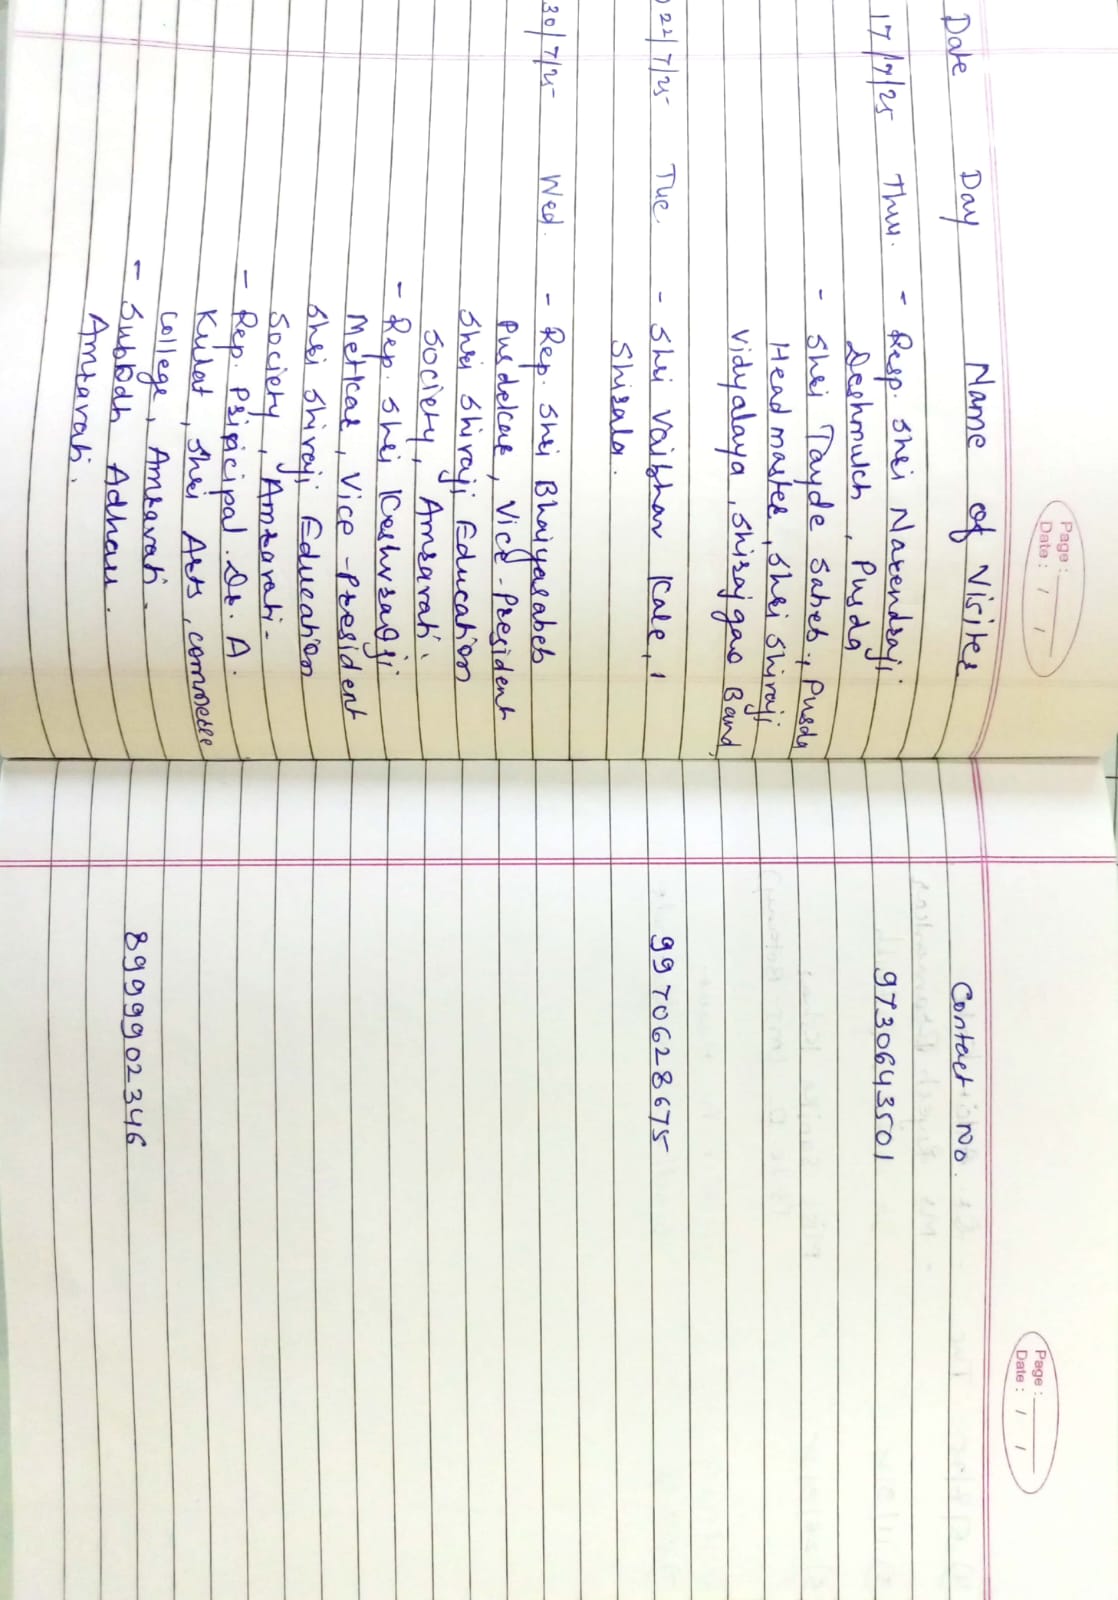 Page :
Date : / /
Date Day Name of Visiter Contact No.
17/7/25 Thu. - Resp. Shri Narendraji 9730643501
Deshmukh, Pusda
- Shri Tayde Saheb, Pusda
Headmaster, Shri Shivaji
Vidyalaya, Shirajgao Band,
22/7/25 Tue. - Shri Vaibhav Kale, 9970628675
Shirala.
30/7/25 Wed. - Rep. Shri Bhaiyasaheb
Pusdekar, Vice-President
Shri Shivaji Education
Society, Amravati.
- Rep. Shri Keshvraoji
Metkar, Vice-President
Shri Shivaji Education
Society, Amravati-
- Rep. Pricipal. Dr. A.
Kulat, Shri Arts, commerce
College, Amravati.
- Subodh Adhau. 8999902346
Amravati.
Page :
Date : / /